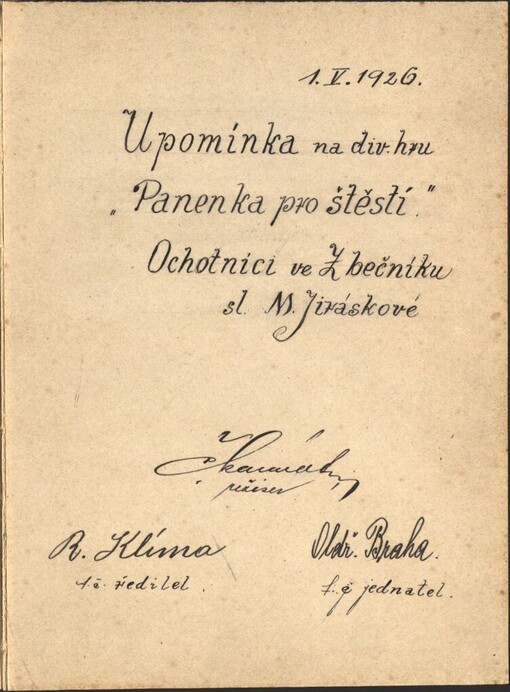 1. V. 1926.
Upomínka na div. hru
„Panenka pro štěstí."
Ochotníci ve Zbečníku
sl. M. Jiráskové
režiser
R. Klíma
t. č. ředitel.
Oldř. Braha.
t. č. jednatel.